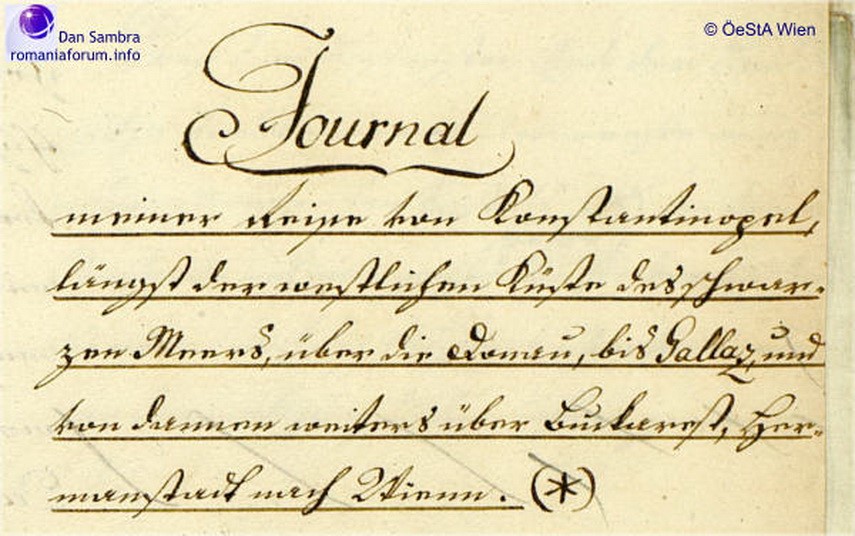 Dan Sambra
romaniaforum.info
© ÖeStA Wien
Journal
meiner Reise von Konstantinopel,
längst der westlichen Küste des schwar-
zen Meers, über die Donau, bis Gallaz, und
von dannen weiters über Buckarest, Her-
manstadt nach Wienn. (*)